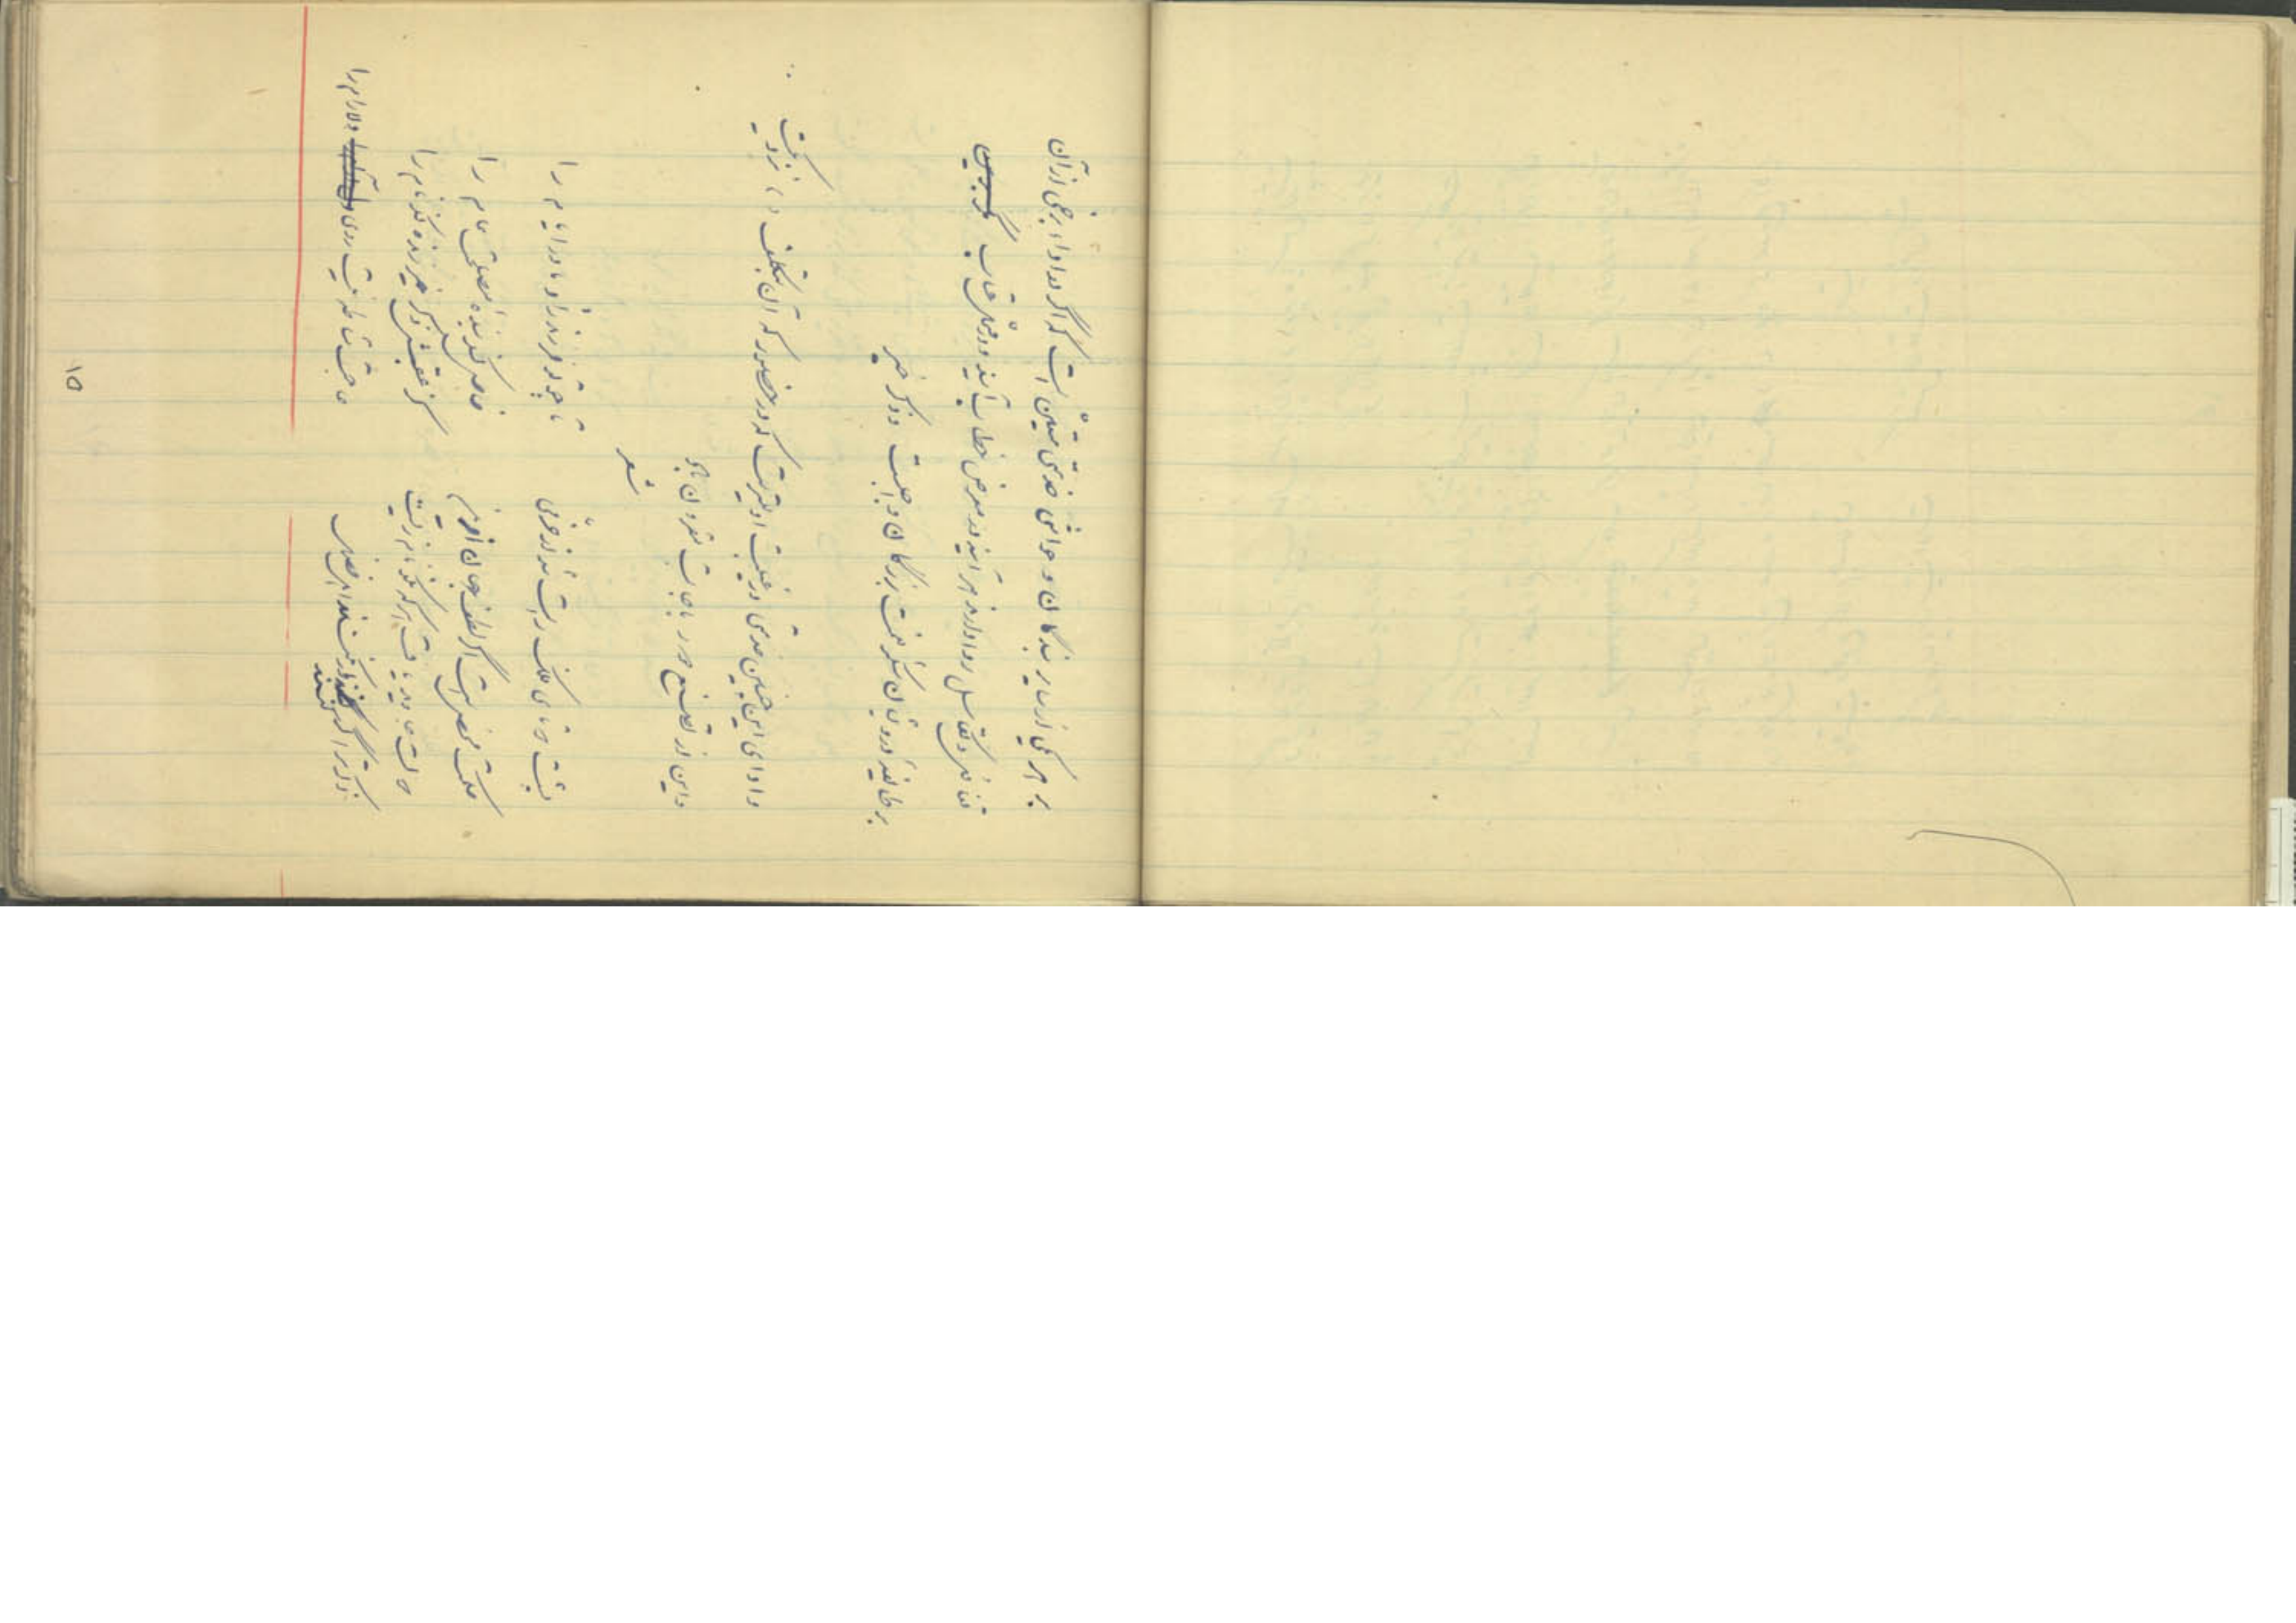 بر هر یکی از سایر بندگان و حواشی خدمتی متعین است که اگر در اداء برخی از آن
تهاون و تکاسل روا دارند هر آینه در معرض خطاب آیند و در محل عتاب مگر برین
بر طایفه درویشان که شکر نعمت بزرگان واجبست و ذکر خیر
و ادای این چنین خدمتی در غیبت اولیترست که در حضور که آن بتکلف
نزدیکست
و این از تصنع دور باجابت مقرون باد
شعر
پشت دوتای فلک راست شد از خرمی
تا چو تو فرزند زاد مادر ایام را
حکمت محض است اگر لطف جهان آفرین
خاص کند بنده مصلحت عام را
دولت جاوید یافت هر که نکونام زیست
کز عقبش ذکر خیر زنده کند نام را
وصف ترا گر کنند اهل فضل
حاجت مشاطه نیست روی دلارام را
۱۵